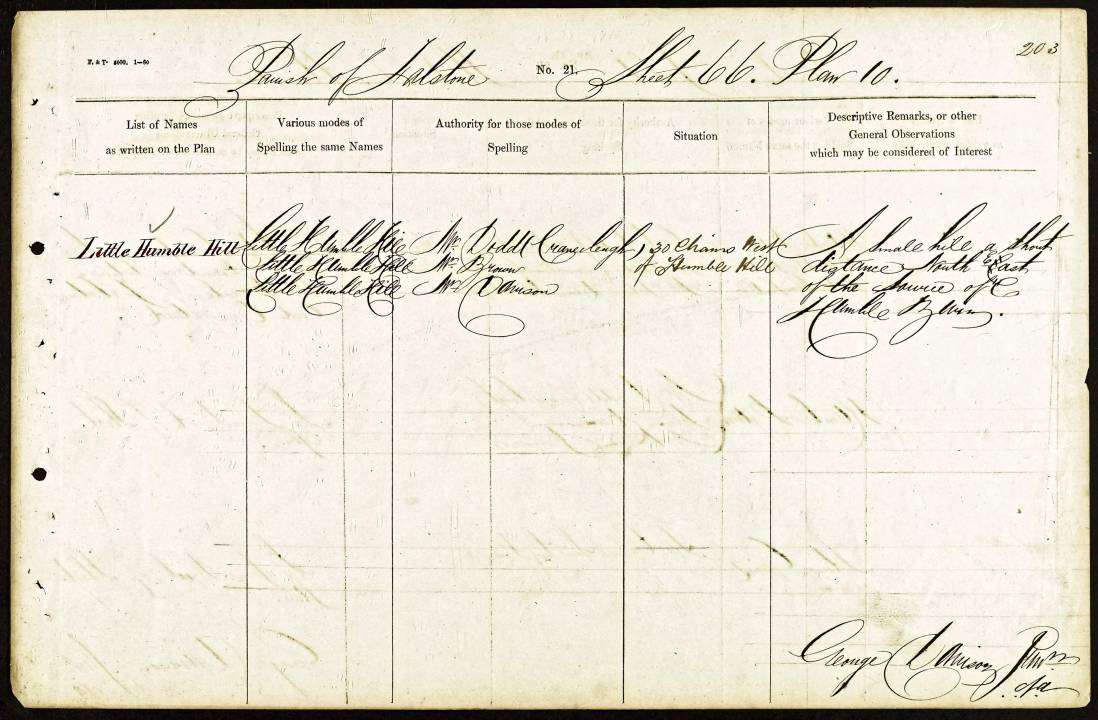 203
F. & T. 4000. 1—60
Parish of Falstone No. 21. Sheet 66. Plan 10.
List of Names
as written on the Plan
Various modes of
Spelling the same Names
Authority for those modes of
Spelling
Situation
Descriptive Remarks, or other
General Observations
which may be considered of Interest
Little Humble Hill
Little Humble Hill
Little Humble Hill
Little Humble Hill
Mr. Dodd Cranecleugh
Mr. Brown
Mr. Davison
30 Chains West
of Humble Hill
A small hill a short
distance North East
of the source of
Humble Burn.
George Davison